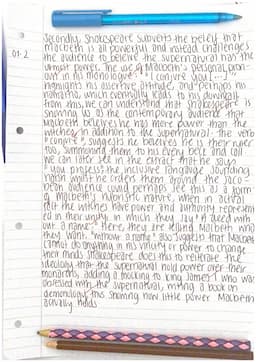 01·2
Secondly, Shakespeare subverts the belief that
Macbeth is all powerful and instead challenges
the audience to believe the supernatural has the
utmost power. The use of Macbeth's personal pron-
oun in his monologue: "I conjure you [...]"
highlights his assertive attitude, and perhaps his
hamartia, which eventually leads to his downfall.
From this, we can understand that Shakespeare is
showing us as the contemporary audience that
Macbeth believes he has more power than the
witches in addition to the supernatural. The verb
"conjure" suggests he believes he is their ruler
too, summoning them to his every beck and call
we can later see in the extract that he says
"you profess", the language
whilst he orders them around. The Jaco-
bean audience could perhaps see this as a form
of Macbeth's hubristic nature, when in actual
fact the witches have power and authority represent-
ed in their unity in which they say "A deed with-
out a name". Here, they are telling Macbeth who
they want. "without a name" also suggests that Macbeth
cannot do anything in his virility or power to change
their minds. Shakespeare does this to reiterate the
ideology that the supernatural hold power over their
monarchs, adding a mocking to King James I who was
obsessed with the supernatural, writing a book on
demonology, thus showing how little power Macbeth
actually holds